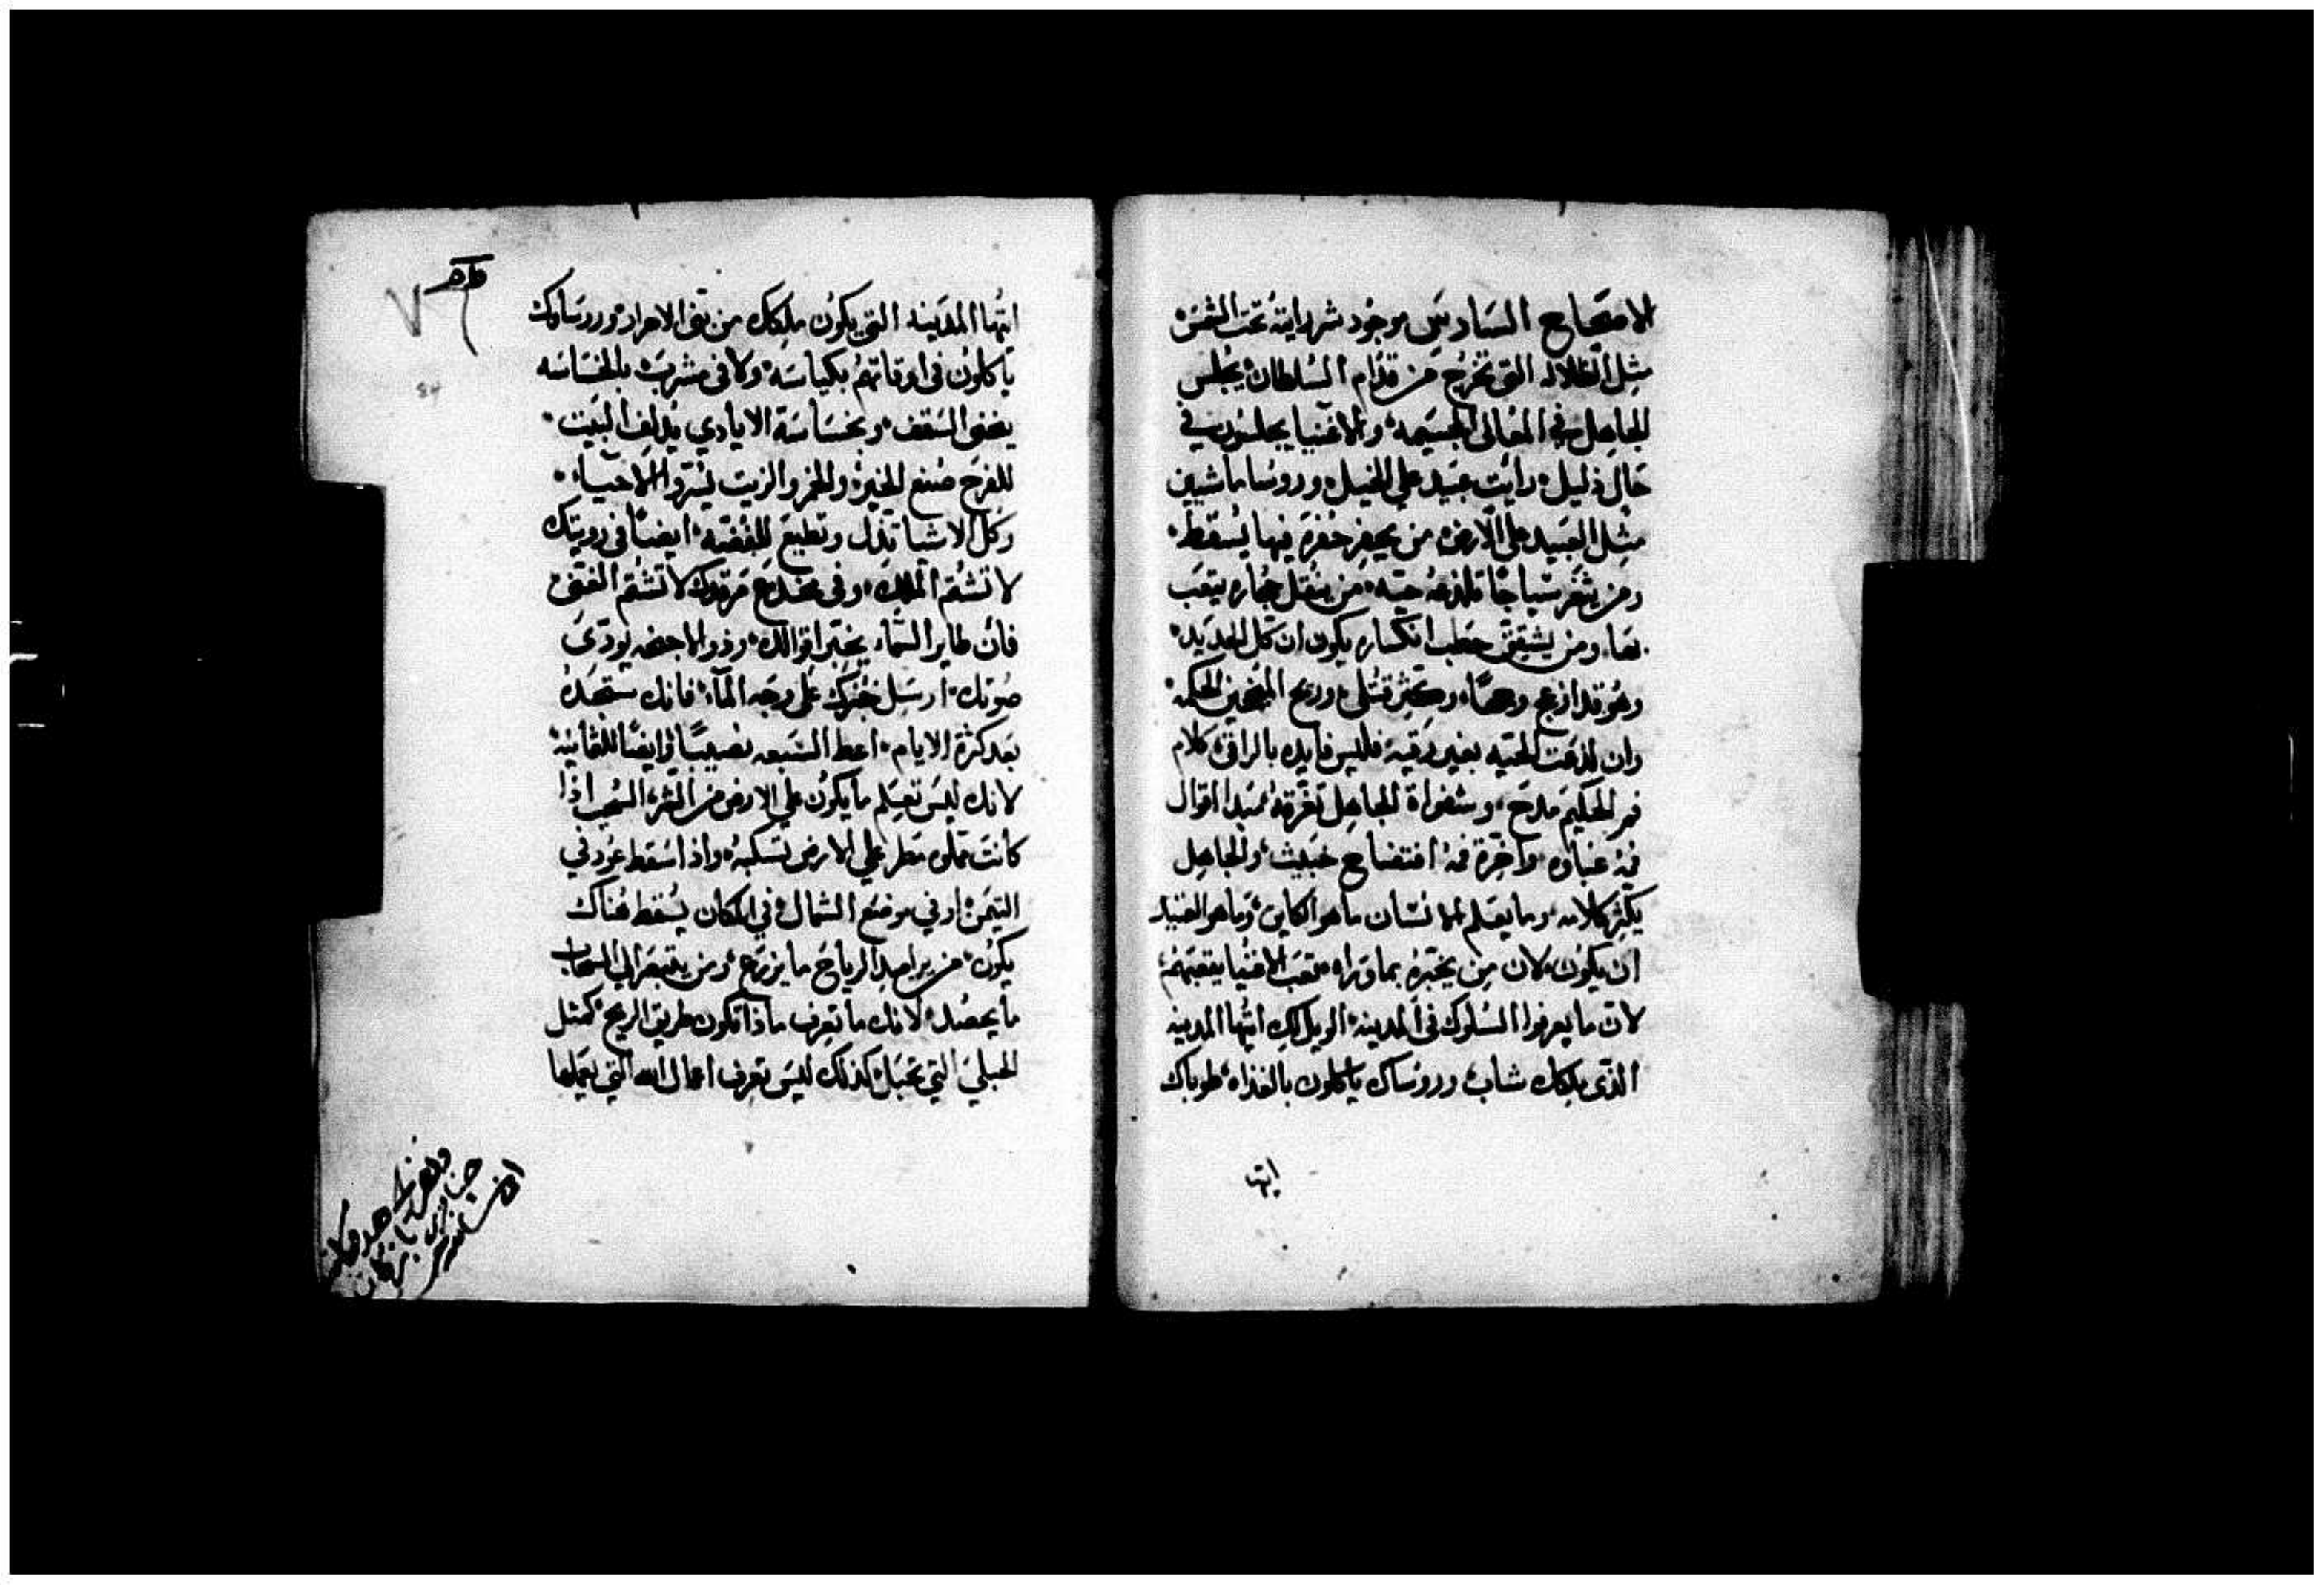 الاصحاح السادس موجود شر رايته تحت الشمس
مثل الظلاله التي تخرج من قدام السلطان يجلس
الجاهل في المعالي الجسيمه والاغنيا يجلسون في
حال ذليل رايت عبيد علي الخيل وروسا ماشيين
مثل العبيد علي الارض من يحفر حفره فيها يسقط
ومن يثغر سياجًا تلدغه حيه من ينقل حجاره يتعب
بها ومن يشقق حطب انكساره يكون ان كل الحديد
وهو قد ازعج وجهًا وتكثر قتلي وربح المنجحين الحكمه
وان لدغت الحيه بغير رقيه فليس فايده بالراقي كلام
فم الحكيم مدح وشفواة الجاهل تغرقه مبدا اقوال
فمه غباوه واخرة فمه افتضاح خبيث والجاهل
يكثر كلامه وما يعلم الانسان ما هو الكاين وما هو العتيد
ان يكون لان من يخبره بما وراه تعب الاغنيا يتعبهم
لان ما يعرفوا السلوك في المدينه الويل لكِ ايتها المدينه
الذي ملكك شاب وروساك ياكلون بالغداه طوباك
ايتها
ايتها المدينه التي يكون ملكك من بني الاحرار وروساوك
ياكلون في اوقاتهم بكياسه ولا في مشربت بالخساسه
يخفي السقف وبخساسة الايادي يدلف البيت
للفرح صنع الخبز والخمر والزيت ليسروا الاحياء
وكل الاشيا تذل وتطيع للفضه ايضًا في رويتك
لا تشتم الملك وفي مخدع مرقدك لا تشتم الغني
فان طاير السماء يخبر اقوالك وذو الاجنحه يودي
صوتك ارسل خبزك علي وجه الماء فانك ستجده
بعد كثرة الايام اعط السبعه نصيبًا وايضًا للثمانيه
لانك ليس تعلم ما يكون علي الارض من الشر السحب اذا
كانت مملوه مطر علي الارض تسكبه واذا سقط عود في
التيمن او في موضع الشمال في المكان يسقط هناك
يكون من يراصد الرياح ما يزرع ومن يتبصر الي السحاب
ما يحصد لانك ما تعرف ماذا تكون طريق الريح كمثل
الحبلي التي تحبل كذلك ليس تعرف اعمال الله التي يعملها